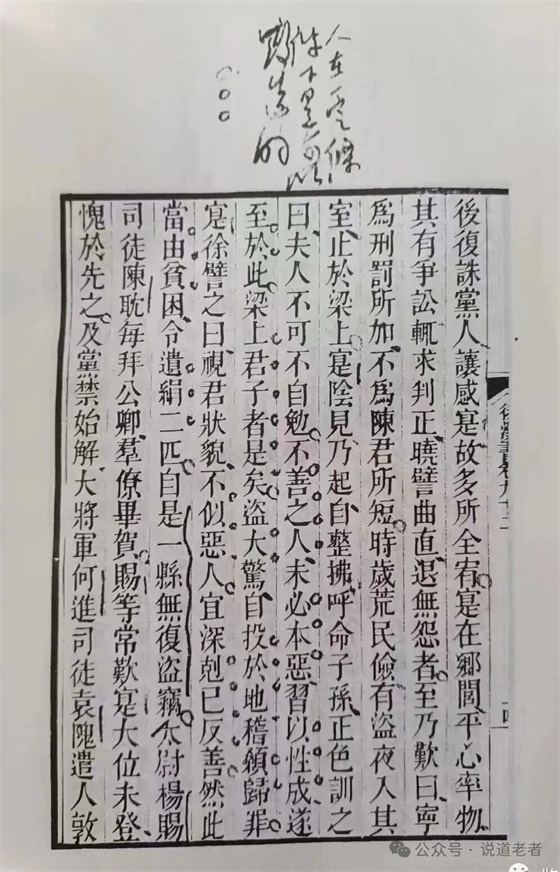 人在一定條
件下是可以
改造的
後漢書卷九十二
後復誅黨人讓感寔故多所全宥寔在鄉閭平心率物
其有爭訟輒求判正曉譬曲直退無怨者至乃歎曰寧
爲刑罰所加不爲陳君所短時歲荒民儉有盜夜入其
室止於梁上寔陰見乃起自整拂呼命子孫正色訓之
曰夫人不可不自勉不善之人未必本惡習以性成遂
至於此梁上君子者是矣盜大驚自投於地稽顙歸罪
寔徐譬之曰視君狀貌不似惡人宜深剋己反善然此
當由貧困令遺絹二匹自是一縣無復盜竊太尉楊賜
司徒陳耽每拜公卿羣僚畢賀賜等常歎寔大位未登
愧於先之及黨禁始解大將軍何進司徒袁隗遣人敦
公众号·说道老者